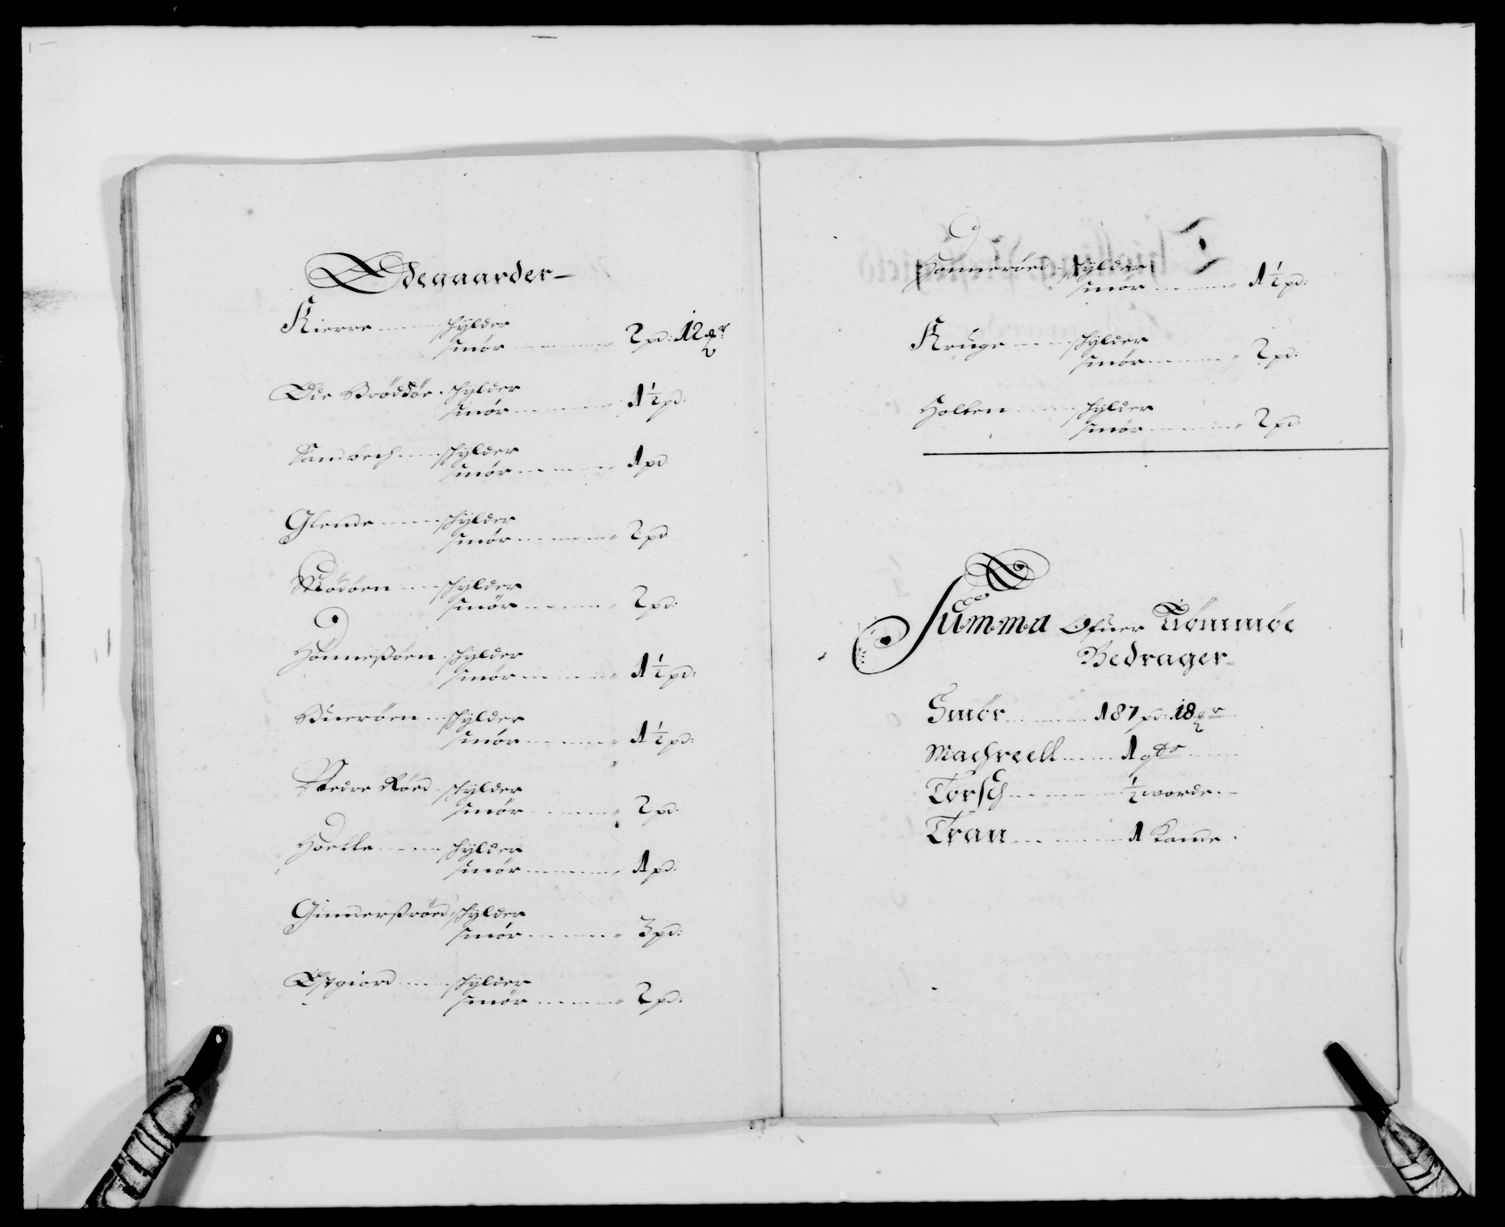 Ødegaarder
Kierre schylder
smör 2 pd: 12
Ode Brödsöe schylder
smör 1½ pd:
Sandbech schylder
smör 1 pd
Glende schylder
smör 2 pd
Mödöen schylder
smör 2 pd:
Hönnesöen schylder
smör 1½ pd:
Bueröen schylder
smör 1½ pd:
Nedre Röed schylder
smör 2 pd:
Hoelle schylder
smör 1 pd:
Gundersröed schylder
smör 3 pd:
Østgiord schylder
smör 2 pd:
schylder
smör 1½ pd:
Kruge schylder
smör 2 pd:
Holten schylder
smör 2 pd:
Summa Ofuer Tiömmöe
Bedrager
Smör 187 pd: 18
Machreell 1
Torsch ½ worde
Tran 1 Kande